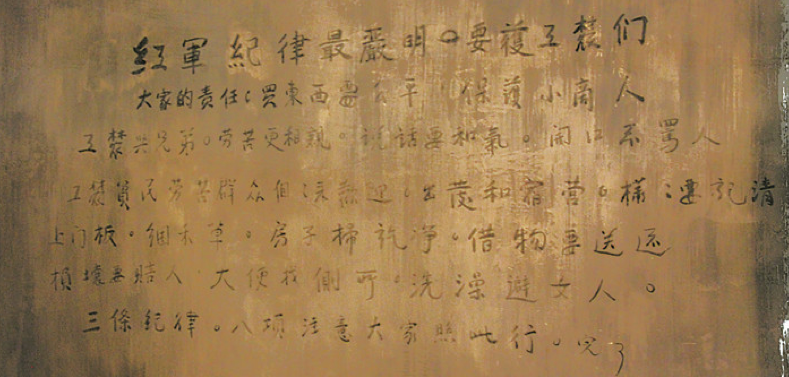 红軍紀律最嚴明。要護工農们
大家的责任：買東西要公平，保護小商人
工農兵兄弟。劳苦更相親。说話要和氣。開口不罵人
工農貧民劳苦群众個：来歡迎。出發和宿营。樣：要記清
上门板。捆禾草。房子掃乾净。借物要送还
損壞要賠人，大便找側所。洗澡避女人。
三條纪律。八項注意大家照此行。完了